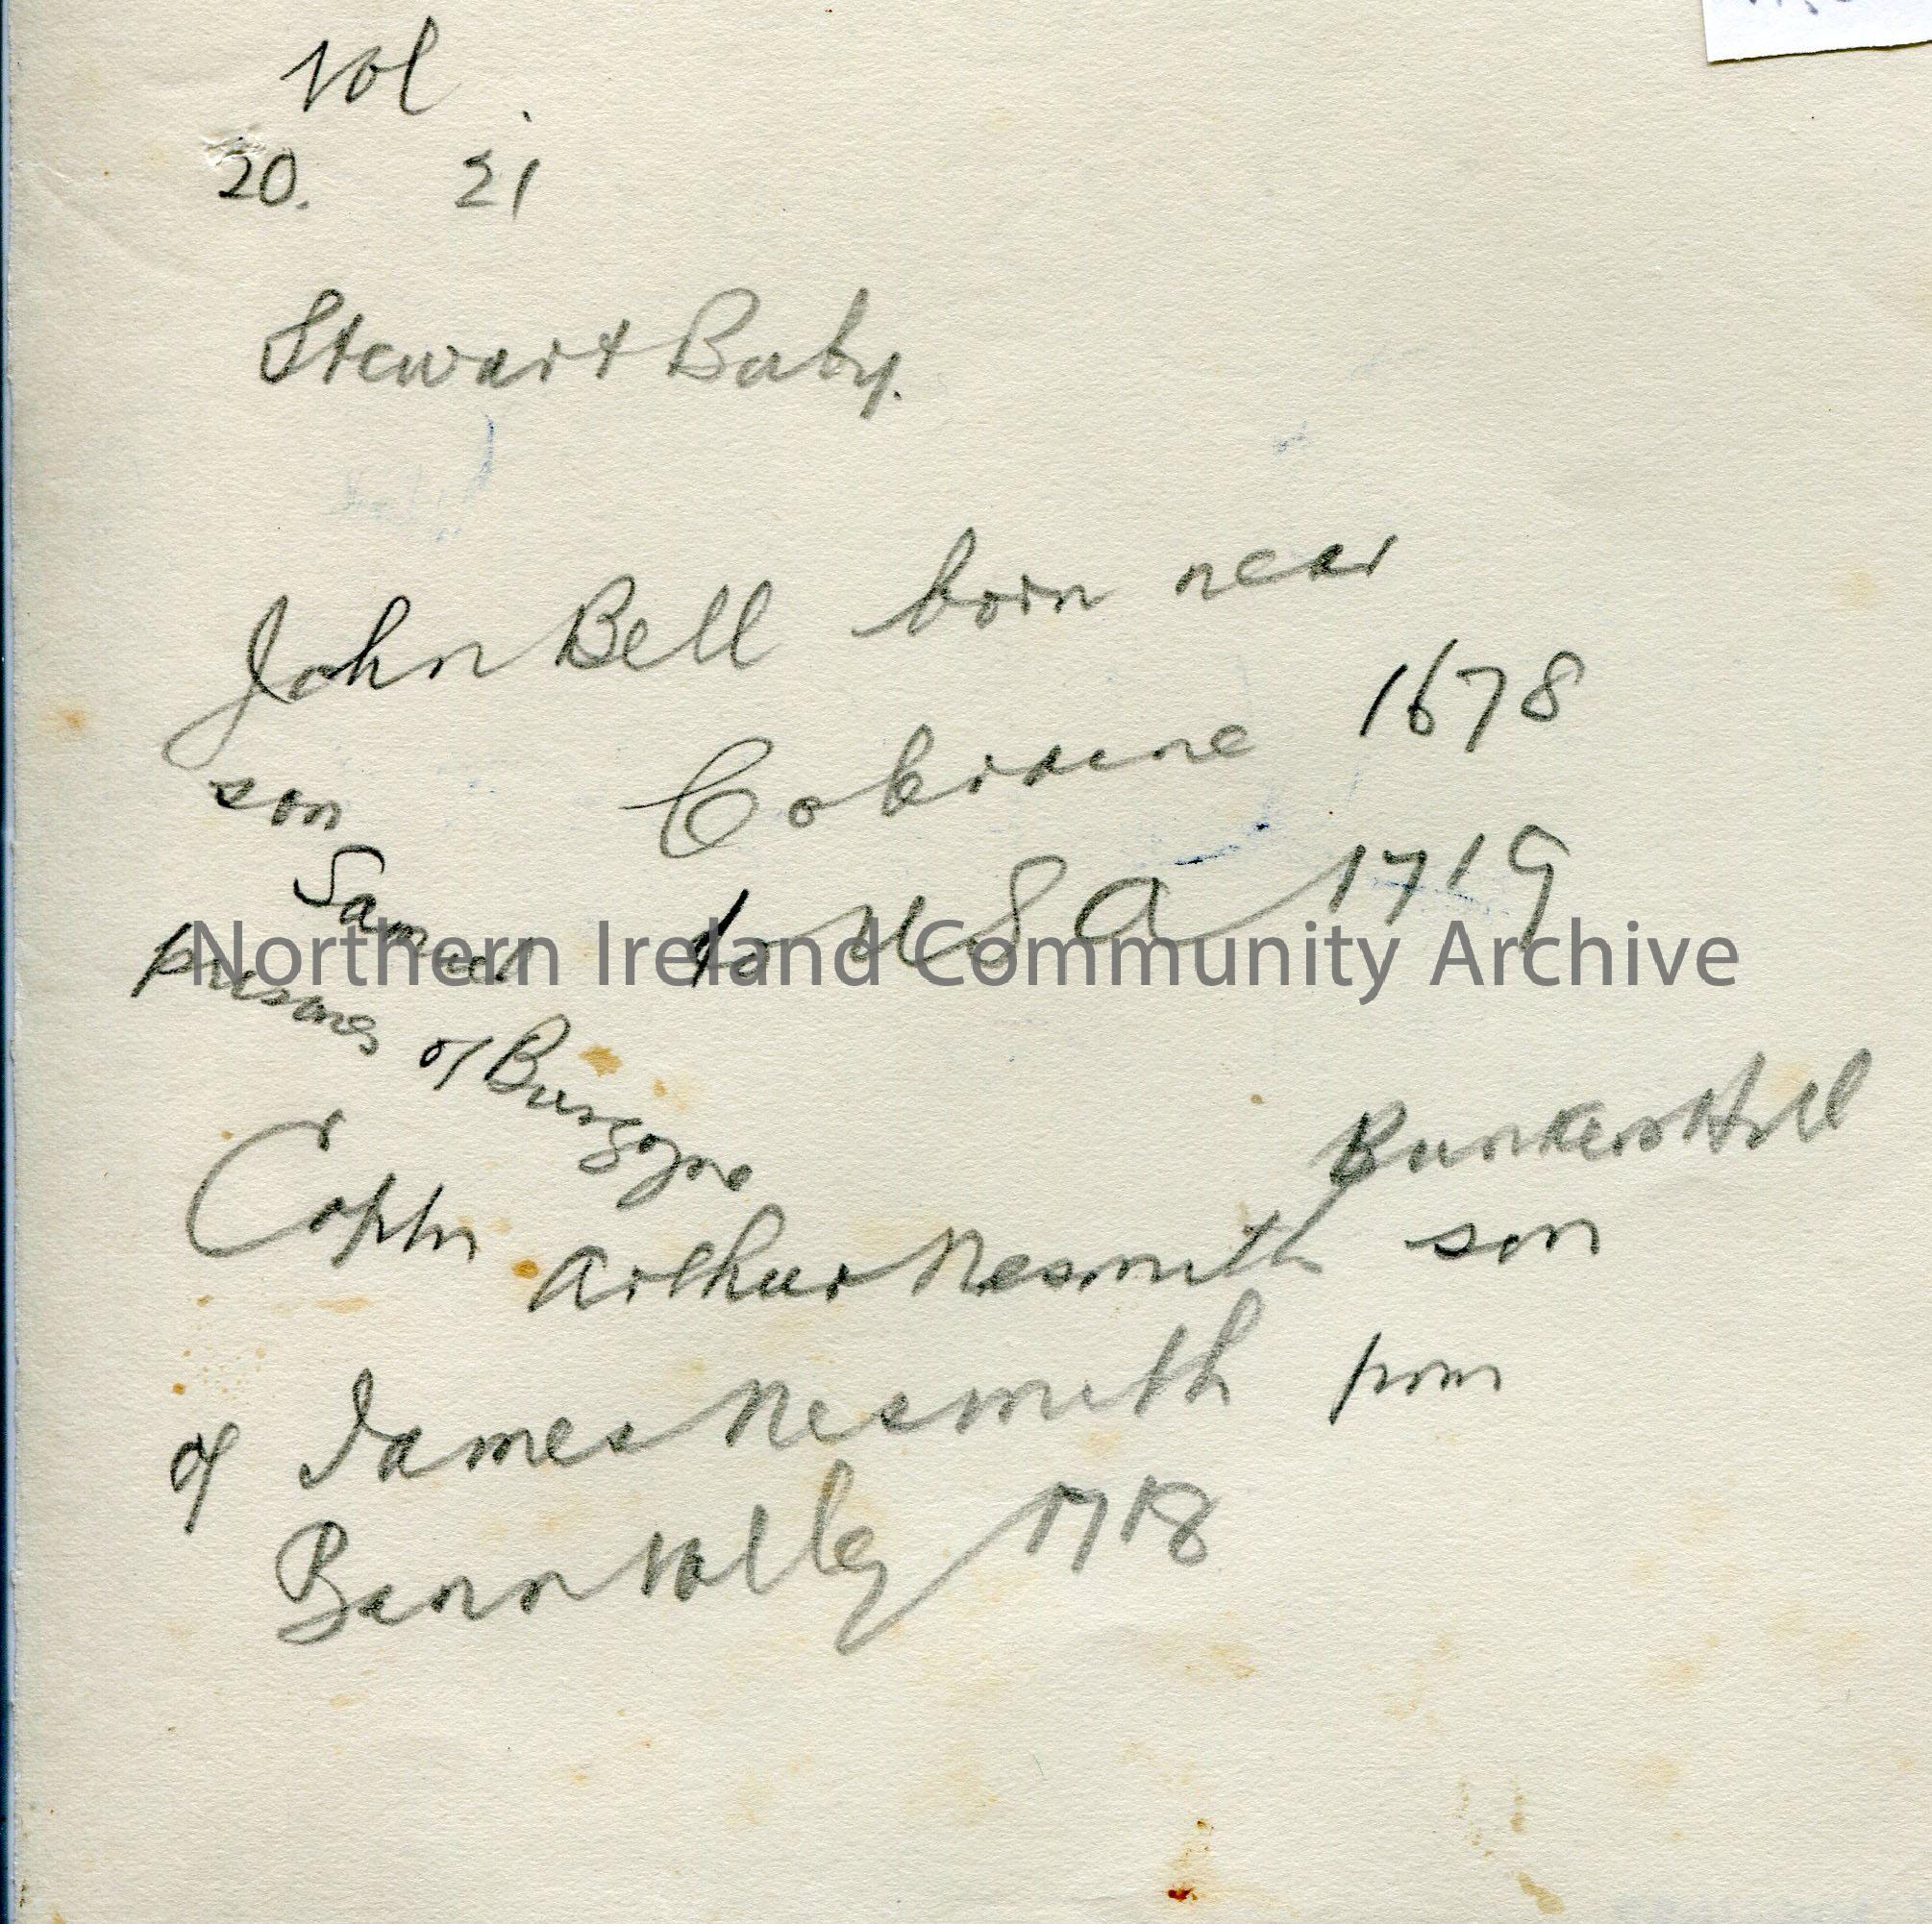 Vol.
20. 21
Stewart Baby.
John Bell born near
Colraine 1678
son
Samuel
to USA 1719
prisoner
of Burgoyne
Northern Ireland Community Archive
Bunkers Hill
Captn Arthur Nesmith son
of James Nesmith from
Bann Valley 1718